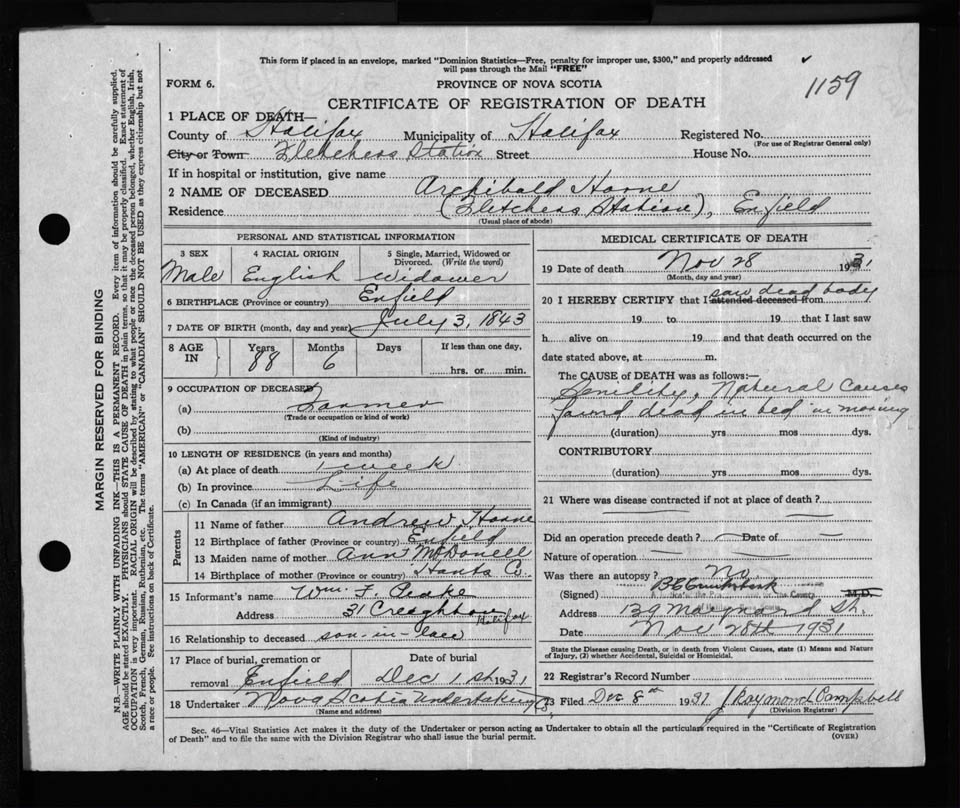 This form if placed in an envelope, marked "Dominion Statistics—Free, penalty for improper use, $300," and properly addressed
will pass through the Mail "FREE"
1159
FORM 6.
PROVINCE OF NOVA SCOTIA
CERTIFICATE OF REGISTRATION OF DEATH
1 PLACE OF DEATH—
County of Halifax Municipality of Halifax Registered No.
(For use of Registrar General only)
City or Town Fletchers Station Street House No.
If in hospital or institution, give name
2 NAME OF DECEASED Archibald Horne
Residence (Fletchers Station), Enfield
(Usual place of abode)
PERSONAL AND STATISTICAL INFORMATION
3 SEX 4 RACIAL ORIGIN 5 Single, Married, Widowed or Divorced. (Write the word)
Male English Widower
6 BIRTHPLACE (Province or country) Enfield
7 DATE OF BIRTH (month, day and year) July 3, 1843
8 AGE IN Years Months Days If less than one day,
88 6 hrs. or min.
9 OCCUPATION OF DECEASED
(a) Farmer
(Trade or occupation or kind of work)
(b)
(Kind of industry)
10 LENGTH OF RESIDENCE (in years and months)
(a) At place of death 1 week
(b) In province Life
(c) In Canada (if an immigrant)
Parents
11 Name of father Andrew Horne
12 Birthplace of father (Province or country) Enfield
13 Maiden name of mother Ann McDonell
14 Birthplace of mother (Province or country) Hants Co.
15 Informant's name Wm. F. Peake
Address 31 Creighton Halifax
16 Relationship to deceased son-in-law
17 Place of burial, cremation or removal Enfield Date of burial Dec 1st 1931
18 Undertaker Nova Scotia Undertaking
(Name and address)
MEDICAL CERTIFICATE OF DEATH
19 Date of death Nov 28 1931
(Month, day and year)
20 I HEREBY CERTIFY that I attended deceased from saw dead body
19 to 19 that I last saw
h alive on 19 and that death occurred on the
date stated above, at m.
The CAUSE OF DEATH was as follows:—
Senility, Natural Causes
found dead in bed in morning
(duration) yrs mos dys.
CONTRIBUTORY
(duration) yrs mos dys.
21 Where was disease contracted if not at place of death?
Did an operation precede death? — Date of —
Nature of operation — —
Was there an autopsy? No
(Signed) M.D.
Address 139 Maynard St.
Date Nov 28th 1931
State the Disease causing Death, or in death from Violent Causes, state (1) Means and Nature
of Injury, (2) whether Accidental, Suicidal or Homicidal.
22 Registrar's Record Number
23 Filed Dec 8th 1931 J Raymond Campbell
(Division Registrar)
Sec. 46—Vital Statistics Act makes it the duty of the Undertaker or person acting as Undertaker to obtain all the particulars required in the "Certificate of Registration
of Death" and to file the same with the Division Registrar who shall issue the burial permit.
(OVER)
MARGIN RESERVED FOR BINDING
N.B.—WRITE PLAINLY WITH UNFADING INK—THIS IS A PERMANENT RECORD. Every item of information should be carefully supplied.
AGE should be stated EXACTLY. PHYSICIANS should STATE CAUSE OF DEATH in plain terms, so that it may be properly classified. Exact statement of
OCCUPATION is very important. RACIAL ORIGIN will be described by stating to what people or race the deceased person belonged, whether English, Irish,
Scotch, French, German, Russian, Ruthenian, etc. The terms "AMERICAN" or "CANADIAN" SHOULD NOT BE USED as they express citizenship but not
a race or people. See instructions on back of Certificate.